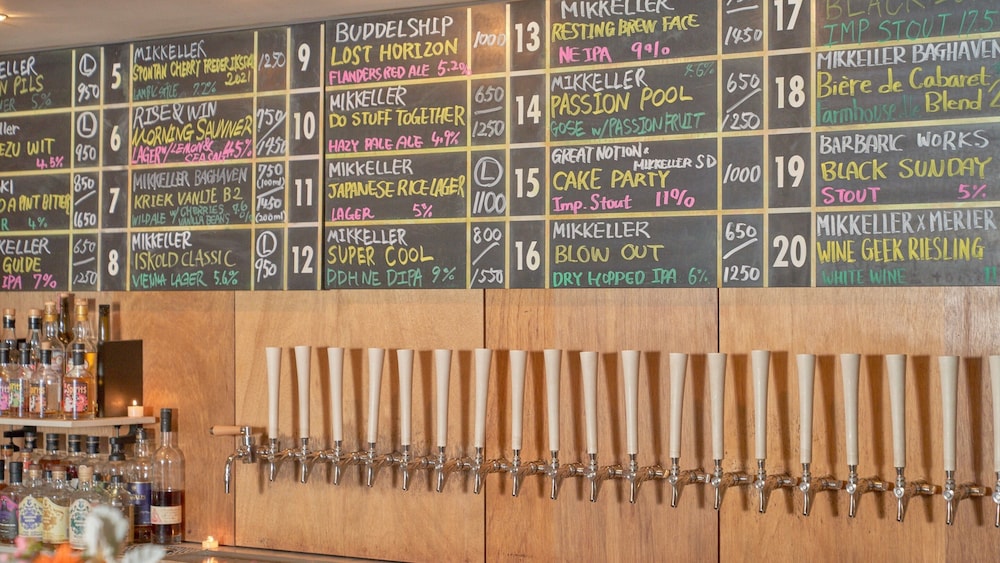 KELLER
N PILS
NER 5%
L
950
KELLER
EZU WIT
4.5%
L
950
SKI
DA PINT BITTER
R 4%
850
1650
KELLER
GUIDE
IPA 7%
650
1250
5
MIKKELLER
SPONTAN CHERRY FREDERIKSDAL
2021
LAMBIC STYLE 7.2%
1250
6
RISE & WIN
MORNING SAUVNER
LAGER W/LEMON & SEASALT 4.5%
750
1450
7
MIKKELLER BAGHAVEN
KRIEK VANIJE B2
WILD ALE W/CHERRIES & VANILLA BEANS
750
(100ml)
1450
(200ml)
8
MIKKELLER
ISKOLD CLASSIC
VIENNA LAGER 5.6%
L
950
9
BUDDELSHIP
LOST HORIZON
FLANDERS RED ALE 5.2%
1000
10
MIKKELLER
DO STUFF TOGETHER
HAZY PALE ALE 4.9%
650
1250
11
MIKKELLER
JAPANESE RICE LAGER
LAGER 5%
L
1100
12
MIKKELLER
SUPER COOL
DDH NE DIPA 9%
800
1550
13
MIKKELLER
RESTING BREW FACE
NE IPA 9%
1450
14
MIKKELLER
PASSION POOL
GOSE W/PASSIONFRUIT
650
1250
15
GREAT NOTION & MIKKELLER SD
CAKE PARTY
Imp. Stout 11%
1000
16
MIKKELLER
BLOW OUT
DRY HOPPED IPA 6%
650
1250
17
IMP STOUT 17.5%
18
MIKKELLER BAGHAVEN
Bière de Cabaret
Farmhouse Blend 2
19
BARBARIC WORKS
BLACK SUNDAY
STOUT 5%
20
MIKKELLER X MERIER
WINE GEEK RIESLING
WHITE WINE